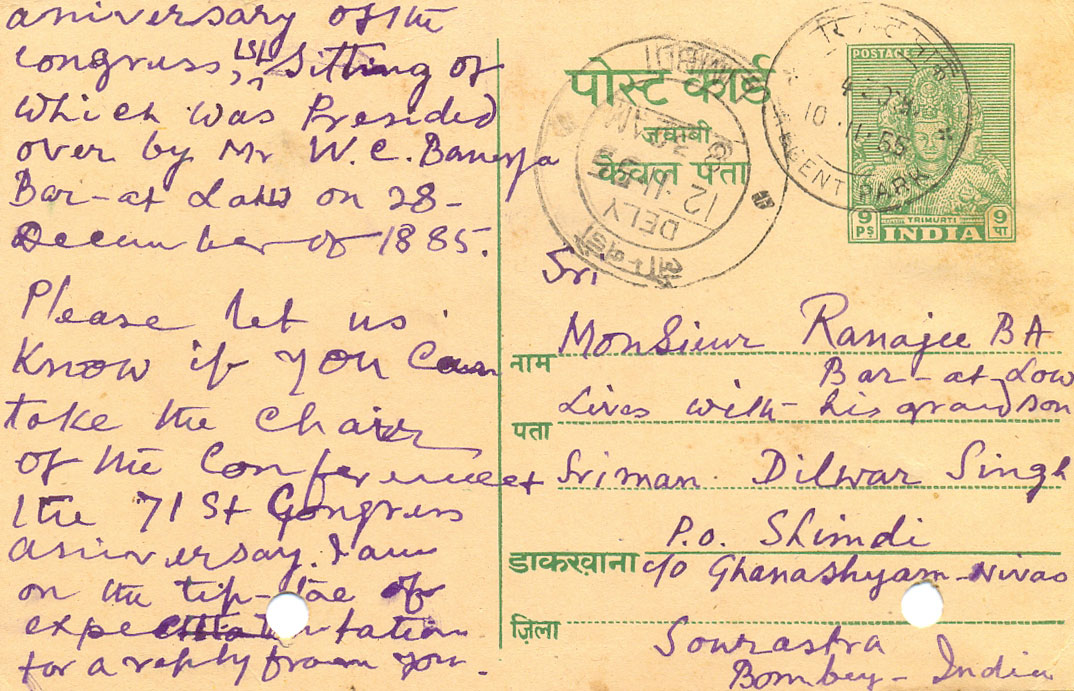 aniversary of the
Congress, 1st Sitting of
Which was Presided
over by Mr W. C. Banerja
Bar-at Law on 28-
December of 1885.
Please let us
Know if you Can
take the chair
of the Conference at
the 71st Congress
aniversay. I am
on the tip-toe of
expectation
for a reply from you.
पोस्ट कार्ड
जवाबी
केवल पता
POSTAGE
TRIMURTI
9 PS INDIA 9 पा
REGENT PARK
10.11.55
DELY
12.11.55
Sri
नाम Monsieur Ranajee BA
Bar-at-Low
पता Lives with his grandson
Sriman Dilwar Singh
P.o. Shimdi
डाकख़ाना c/o Ghanashyam-Nivas
ज़िला Sourastra
Bombey - India